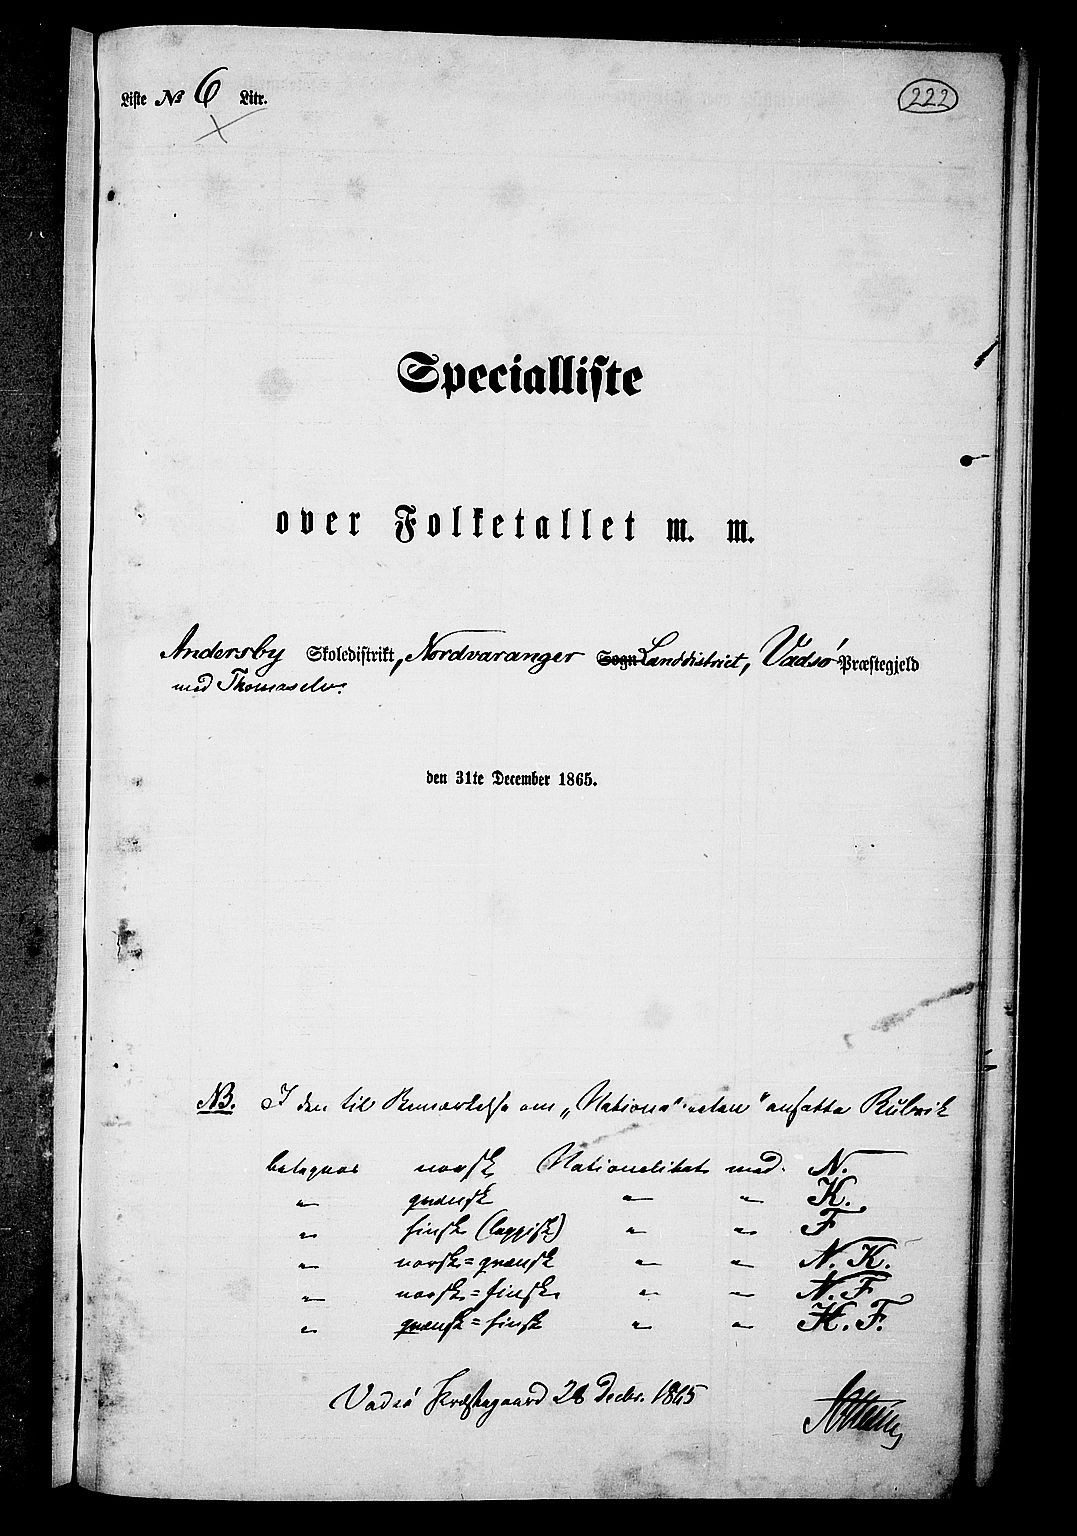 Liste № 6 Litr.
222
Specialliste
over Folketallet m. m.
Andersby Skoledistrikt, Nordvaranger Sogn Landdistrict, Vadsø Præstegjeld
med Thomaselv.
den 31te December 1865.
NB. I den til Bemærkelse om „Nationaliteten" ansatte Rubrik
betegnes norsk Nationalitet med N.
" qvænsk " " K.
" finsk (lappisk) " " F
" norsk=qvænsk " " N. K.
" norsk=finsk " " N. F
" qvænsk=finsk " " K. F.
Vadsø Præstegaard 28 Decbr. 1865